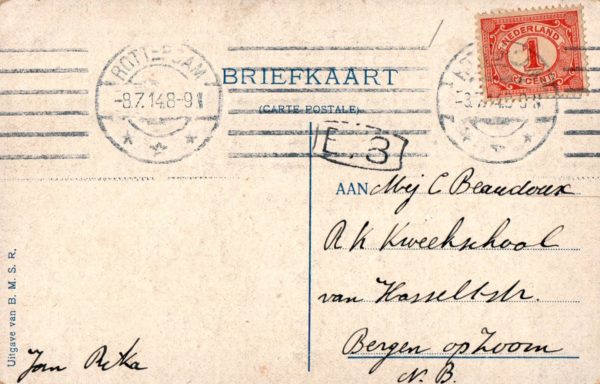 NEDERLAND
1
CENT
ROTTERDAM
-8.7.14 8-9 N
BRIEFKAART
(CARTE POSTALE)
E. 3
AAN Mej C Beaudoux
R K Kweekschool
van Hasseltstr.
Bergen op Zoom
N. B.
Uitgave van B. M. S. R.